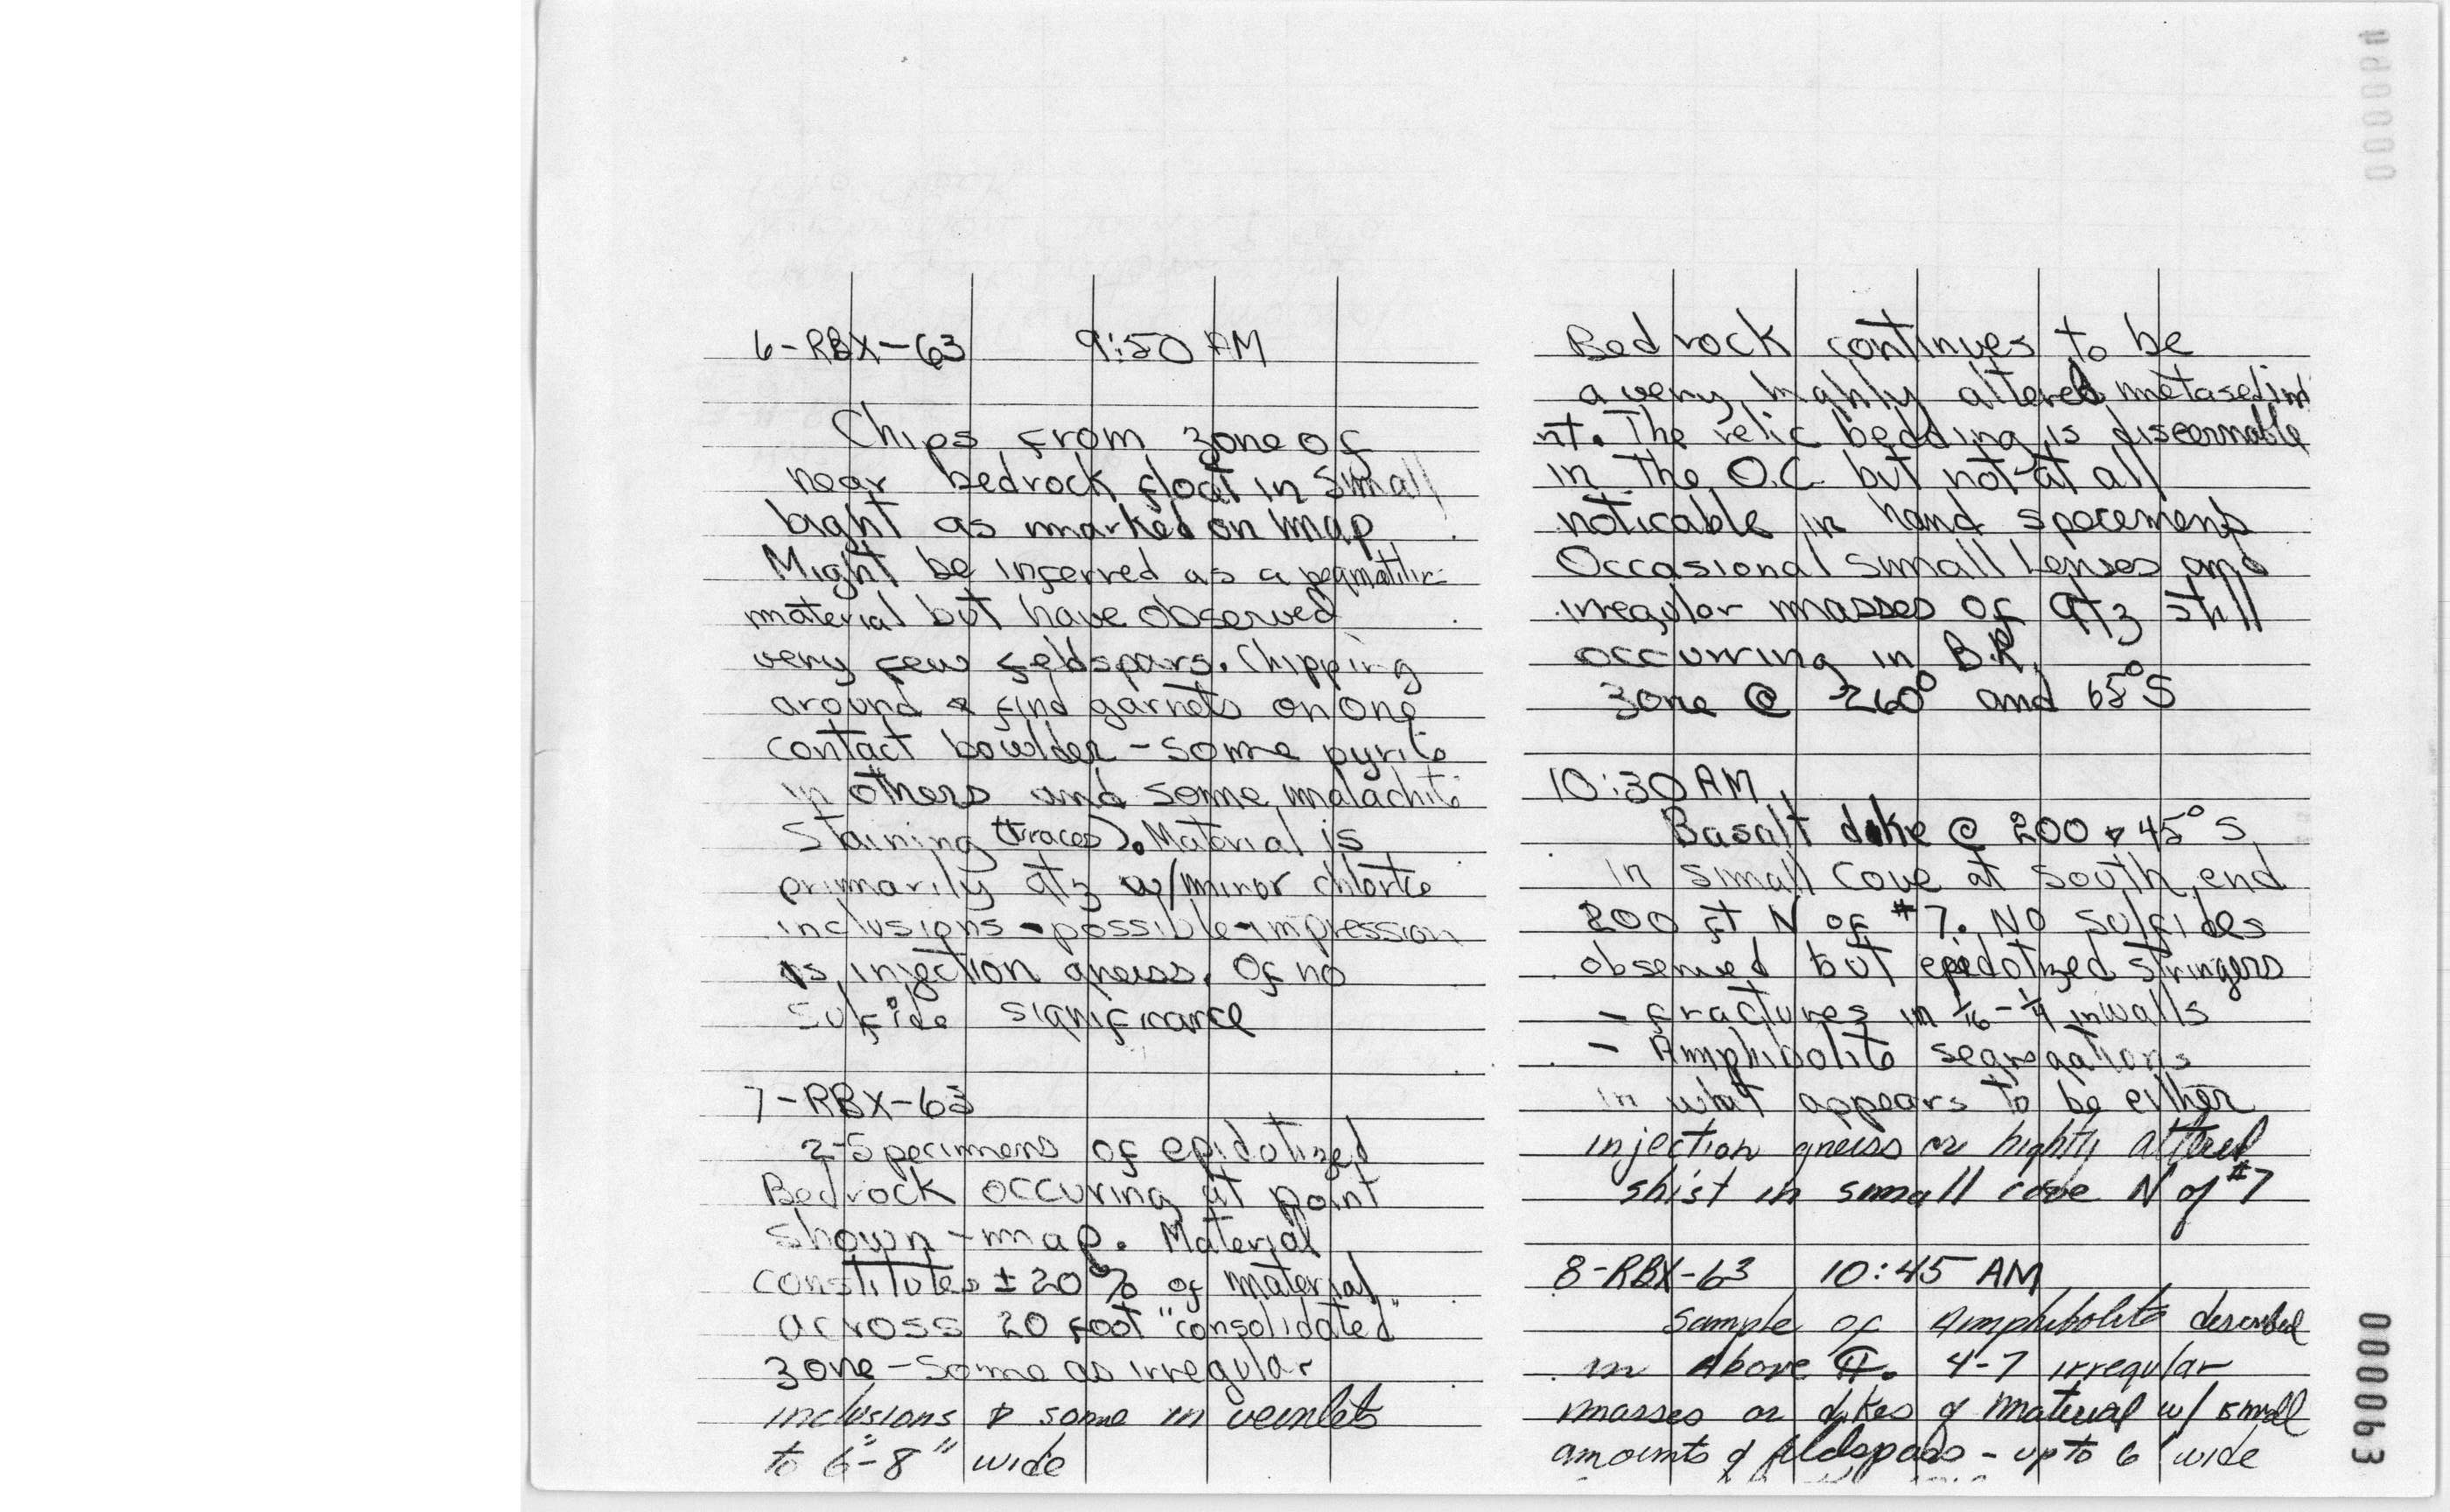 6-RBX-63 9:50 AM
Chips from zone of
near bedrock float in small
bight as marked on map
Might be inferred as a pegmatitic
material but have observed
very few feldspars. Chipping
around & find garnets on one
contact boulder - some pyrite
in others and some malachite
staining (traces). Material is
primarily qtz w/minor chlorite
inclusions - possible - impression
is injection gneiss. Of no
sulfide significance
7-RBX-63
2-Specimens of epidotized
Bedrock occuring at point
shown - map. Material
constitutes ± 20% of material
across 20 foot "consolidated"
zone - some as irregular
inclusions & some in veinlets
to 6"-8" wide
Bedrock continues to be
a very highly altered metasedim
nt. The relic bedding is discernable
in the O.C. but not at all
noticable in hand specemens
Occasional small Lenses and
irregular masses of qtz still
occurring in B.R.
zone @ 260° and 65°S
10:30 AM
Basalt dike @ 200 & 45° S
in small cove at south end
200 ft N of #7. No sulfides
observed but epidotized stringers
- fractures in 1/16 - 1/4 in walls
- Amphibolite segregations
in what appears to be either
injection gneiss or highly altered
shist in small cove N of #7
8-RBX-63 10:45 AM
Sample of Amphibolite described
in Above ¶. 4-7 irregular
masses or dikes of material w/ small
amounts of feldspars - up to 6' wide
000063